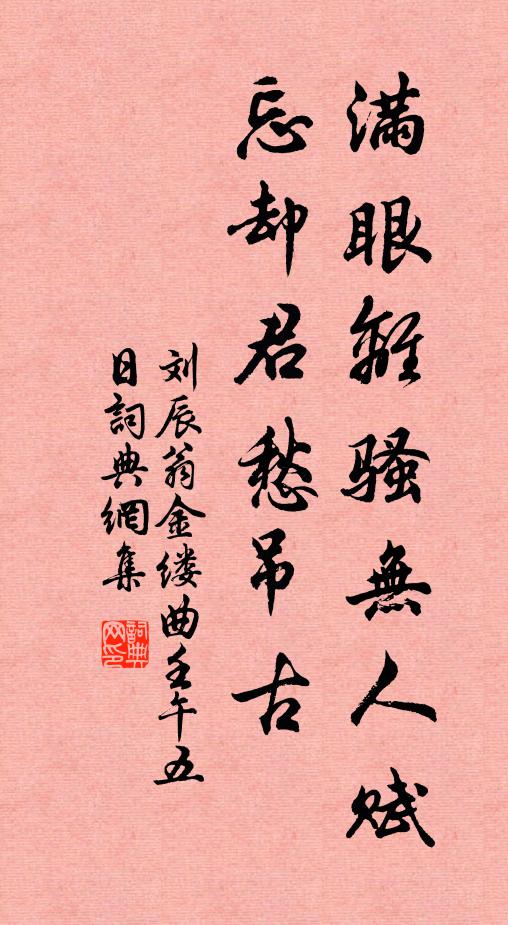 满眼離骚無人赋
忘却君愁吊古
刘辰翁金缕曲壬午五
日詞典網集
詞典
网印